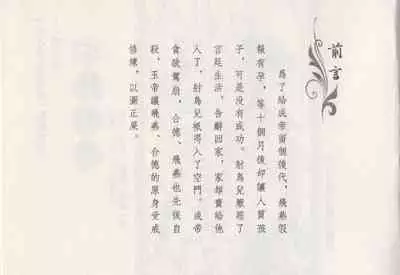 前言
為了給成帝留個後代，飛燕假
報有孕，等十個月後卻讓人買孩
子，可是沒有成功。射鳥兒厭惡了
宮廷生活，告辭回家，家卻賣給他
人了，射鳥兒祇得入了空門。成帝
貪欲駕崩，合德、飛燕也先後自
殺，玉帝讓飛燕、合德的原身受戒
修煉，以彌正果。